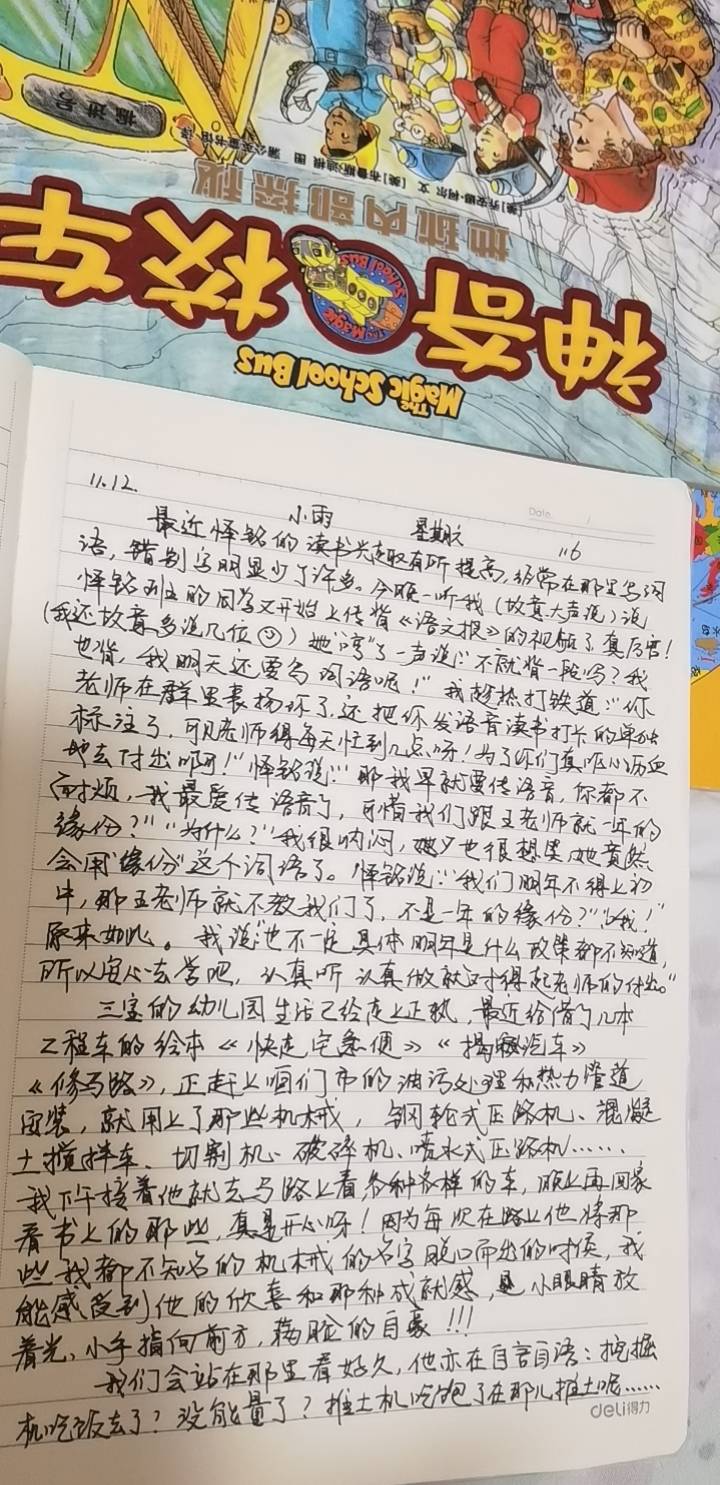 推进号
[美]乔安娜·柯尔 文 [美]布鲁斯·迪根 图 蒲公英童书馆 译
地球内部探秘
神奇校车
The Magic School Bus
The Magic School Bus
Date. /
11.12. 小雨 星期六 116
最近怿铭的读书兴趣有所提高,经常在那里写词
语,错别字明显少了许多。今晚一听我(故意大声说)说
怿铭班上的同学又开始上传背《语文报》的视频了真厉害!
(我还故意多说几位☺)她“哼”了一声说:“不就背一段吗?我
也背,我明天还要写词语呢!”我趁热打铁道:“你
老师在群里表扬你了,还把你发语音读书打卡的单独
标注了,可见老师得每天忙到几点呀!为了你们真呕心沥血
地去付出啊!”怿铭说:“那我早就要传语音,你都不
耐烦,我最爱传语音了,可惜我们跟王老师就一年的
缘份?”“为什么?”我很纳闷,也很想笑,她竟然
会用“缘份”这个词语了。怿铭说:“我们明年不得上初
中,那王老师就不教我们了,不是一年的缘份?”“哦!”
原来如此。我说“也不一定具体明年是什么政策都不知道,
所以安心去学吧,认真听认真做就对得起老师的付出。”
三宝的幼儿园生活已经走上正轨,最近给借了几本
工程车的绘本《快走宅急便》《揭秘汽车》
《修马路》,正赶上咱们市的油污处理和热力管道
安装,就用上了那些机械,钢轮式压路机、混凝
土搅拌车、切割机、破碎机、喷水式压路机……
我下午接着他就去马路上看各种各样的车,晚上再回家
看书上的那些,真是开心呀!因为每次在路上他将那
些我都不知名的机械的名字脱口而出的时候,我
能感受到他的欣喜和那种成就感,小眼睛放
着光,小手指向前方,满脸的自豪!!!
我们会站在那里看好久,他亦在自言自语:挖掘
机吃饭去了?没能量了?推土机吃饱了在那儿推土呢……
deli得力